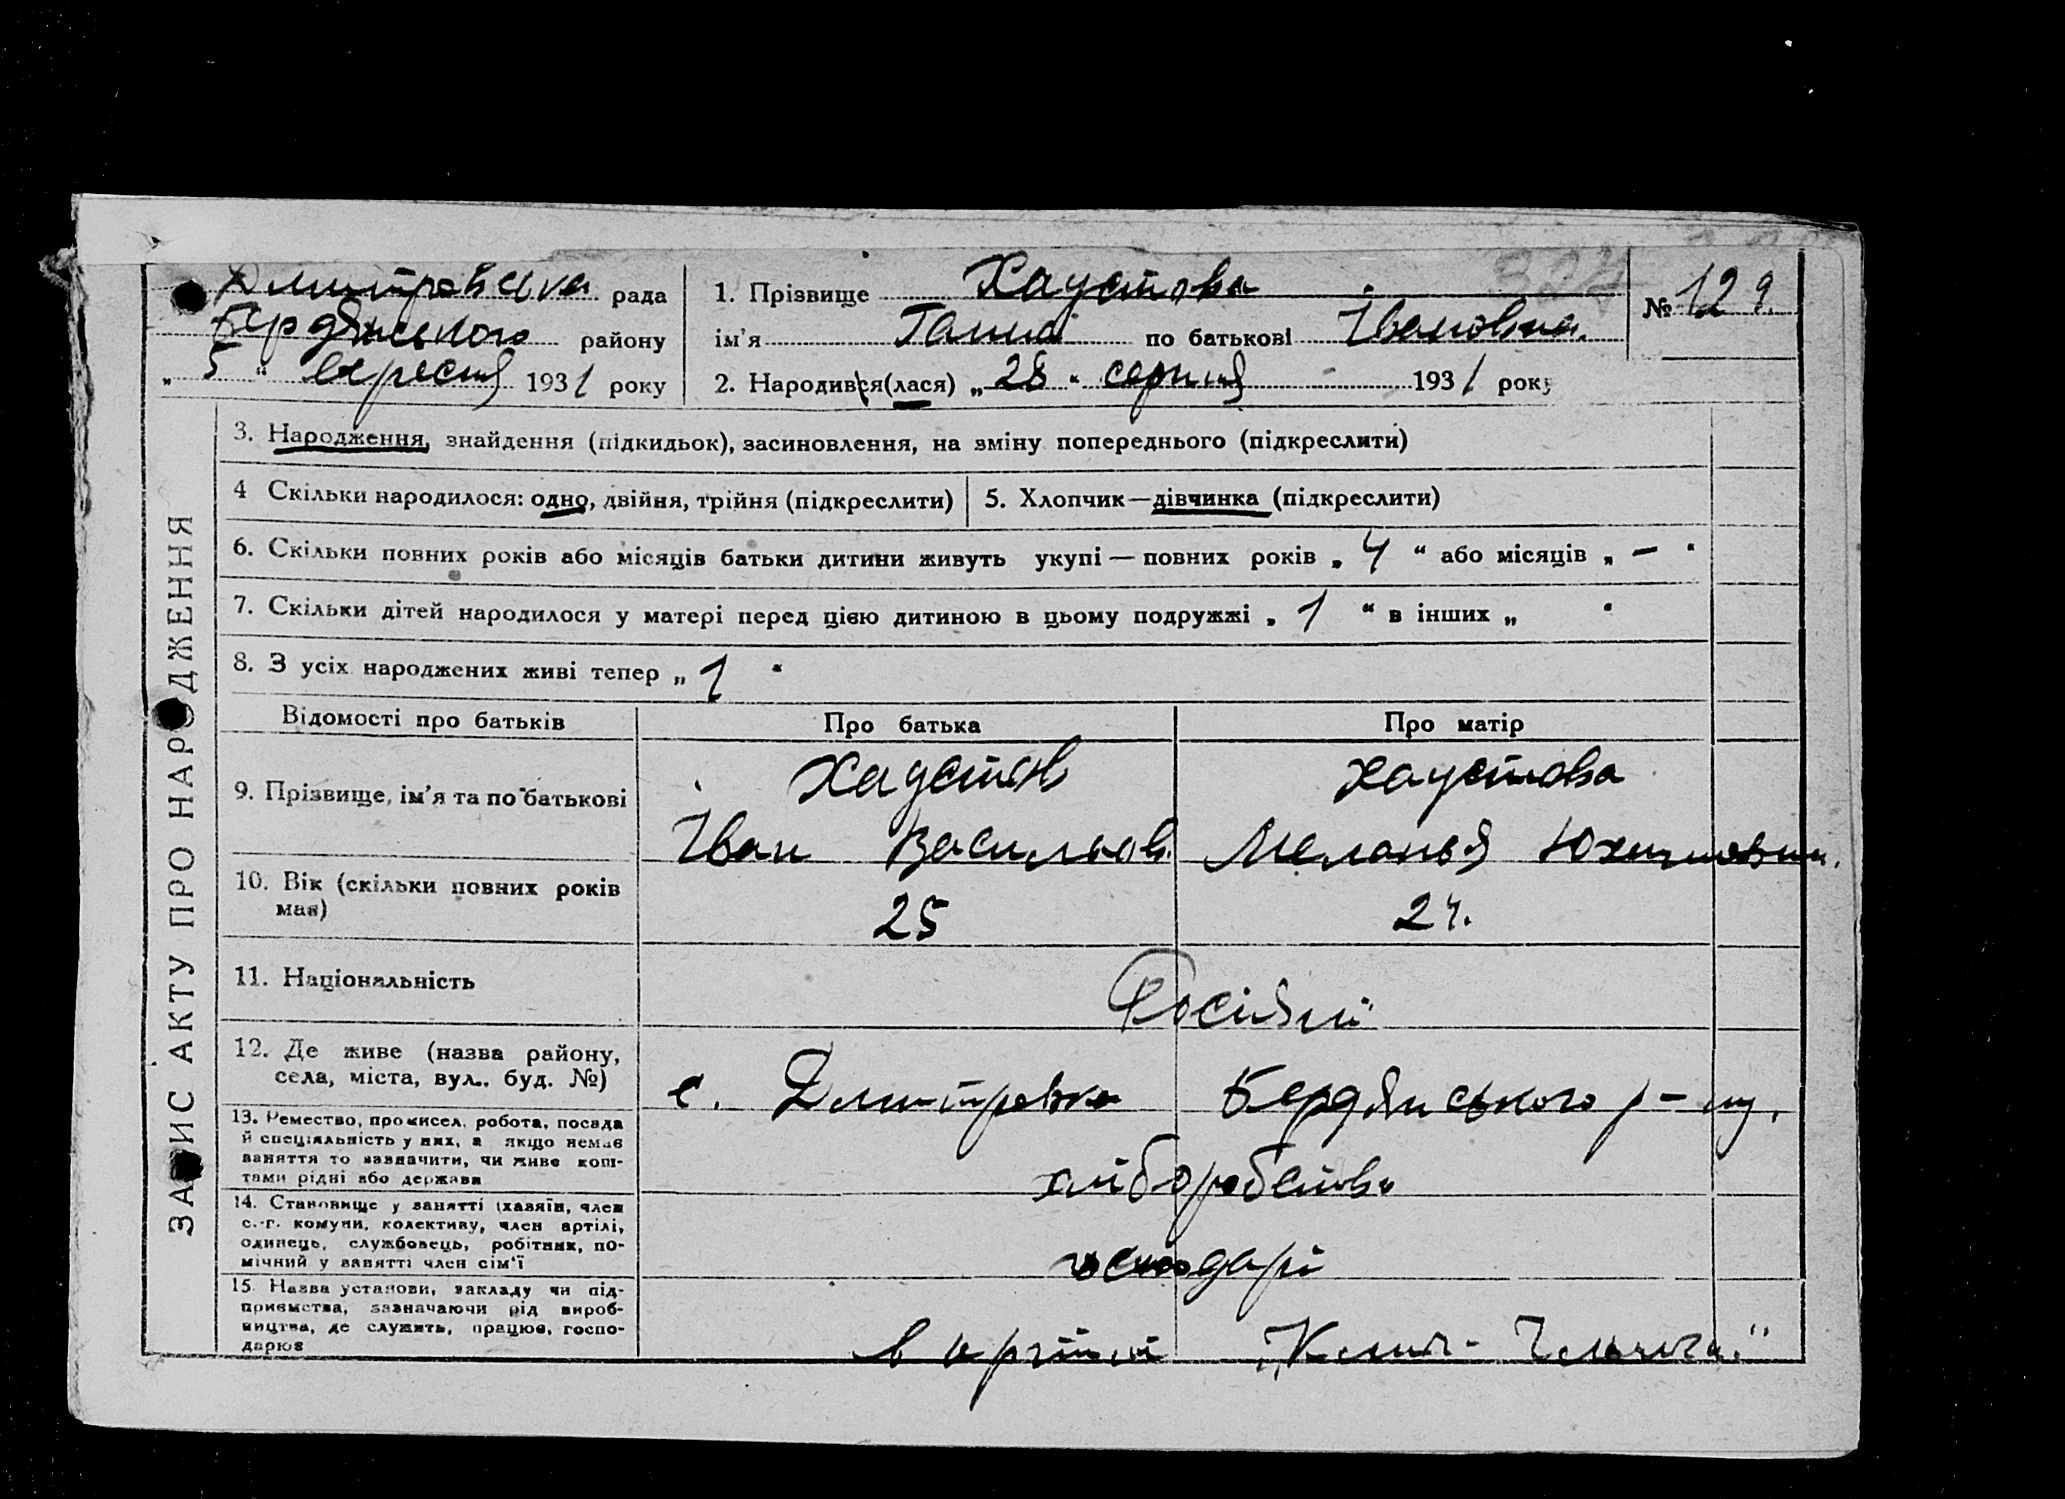 Дмитровська рада
Бердянського району
„ 5 “ вересня 1931 року
1. Прізвище Хаустова
ім'я Ганна по батькові Івановна.
2. Народився(лася) „ 28 “ серпня 1931 року
№ 129.
ЗАПИС АКТУ ПРО НАРОДЖЕННЯ
3. Народження, знайдення (підкидьок), засиновлення, на зміну попереднього (підкреслити)
4 Скільки народилося: одно, двійня, трійня (підкреслити)
5. Хлопчик—дівчинка (підкреслити)
6. Скільки повних років або місяців батьки дитини живуть укупі — повних років „ 4 “ або місяців „ – “
7. Скільки дітей народилося у матері перед цією дитиною в цьому подружжі „ 1 “ в інших „ “
8. З усіх народжених живі тепер „ 1 “
Відомості про батьків Про батька Про матір
9. Прізвище, ім'я та по батькові
Хаустов
Іван Васильов.
Хаустова
Меланья Юхимовна.
10. Вік (скільки повних років
має)
25
24.
11. Національність
Росіяни
12. Де живе (назва району,
села, міста, вул., буд. №)
с. Дмитровка Бердянського р-ну,
13. Ремество, промисел, робота, посада
й спеціяльність у них, а якщо немає
заняття то зазначити, чи живе кош-
тами рідні або держави
хліборобство
14. Становище у занятті (хазяїн, член
с.-г. комуни, колективу, член артілі,
одинець, службовець, робітник, по-
мічний у занятті член сім'ї
господарі
15. Назва установи, закладу чи під-
приємства, зазначаючи рід вироб-
ництва, де служить, працює, госпо-
дарює
в артілі „